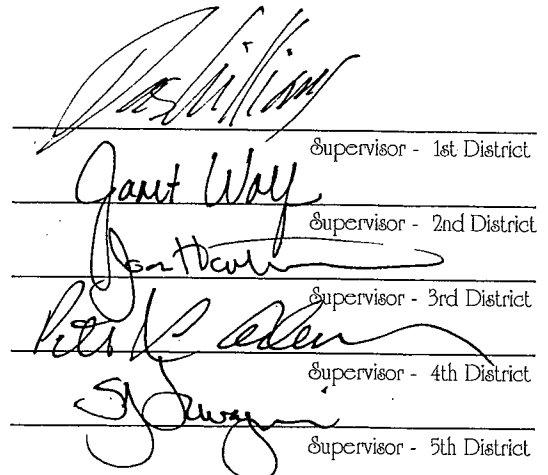 Das Williams
Supervisor - 1st District
Janet Wolf
Supervisor - 2nd District
Supervisor - 3rd District
Supervisor - 4th District
Supervisor - 5th District